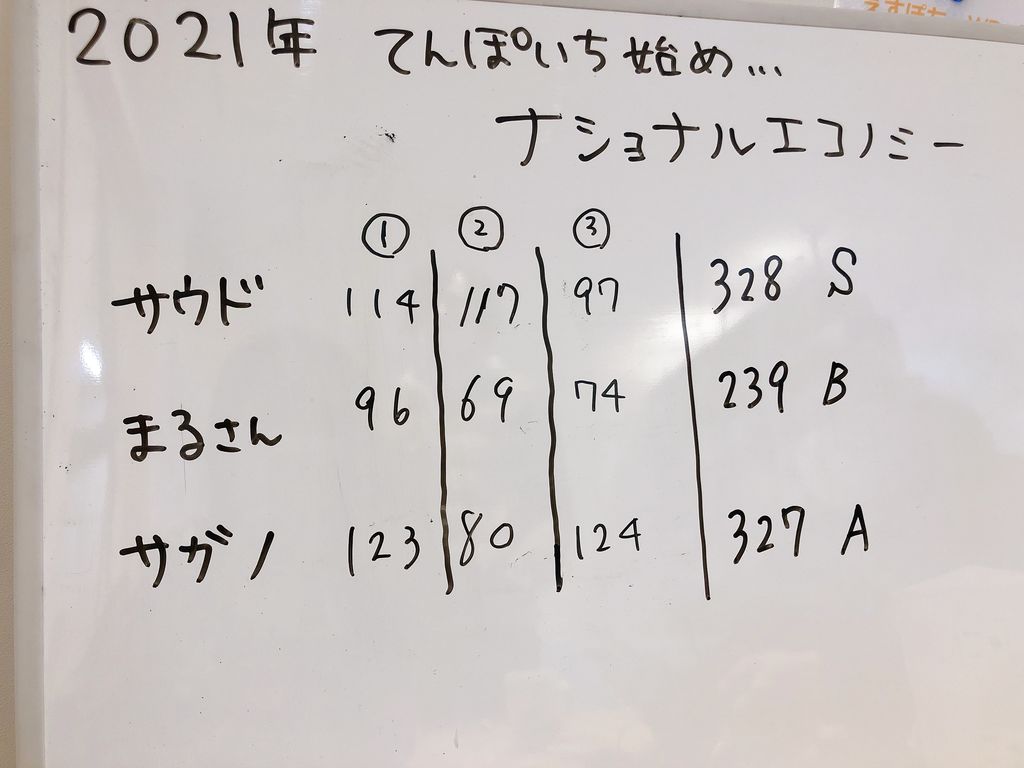 2021年 てんぽいち始め...
ナショナルエコノミー
① ② ③
サウド 114 117 97 328 S
まるさん 96 69 74 239 B
サガノ 123 80 124 327 A